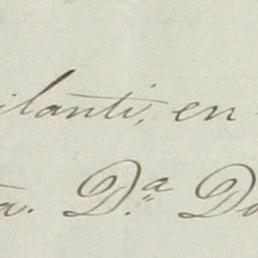 ilanti, en
a. D.ª Do